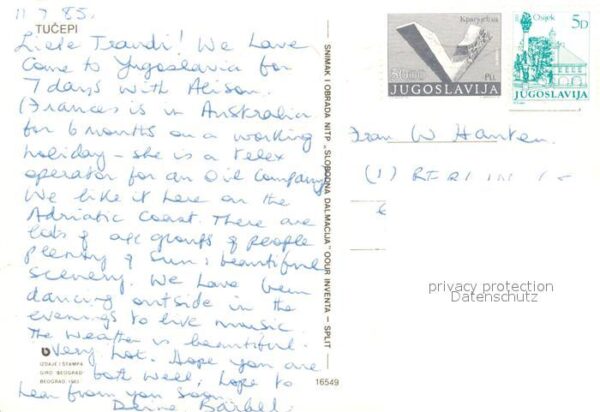 11 7 85.
TUČEPI
Liebe Traudi! We have
come to Yugoslavia for
7 days with Alison.
(Frances is in Australia
for 6 months on a working
holiday - she is a telex
operator for an Oil Company
We like it here on the
Adriatic Coast. There are
lots of age groups of people
plenty of sun & beautiful
scenery. We have been
dancing outside in the
evenings to live music.
The weather is beautiful.
very hot. Hope you are
both well, hope to
hear from you soon
Deine Bärbel.
IZDAJE I ŠTAMPA
GIRO "BEOGRAD"
BEOGRAD, 1983.
16549
SNIMAK I OBRADA NITP „SLOBODNA DALMACIJA" OOUR INVENTA — SPLIT
Крагујевац
JUGOSLAVIJA
Osijek
5D
JUGOSLAVIJA
Frau W Hanken.
(1) BERLIN
privacy protection
Datenschutz